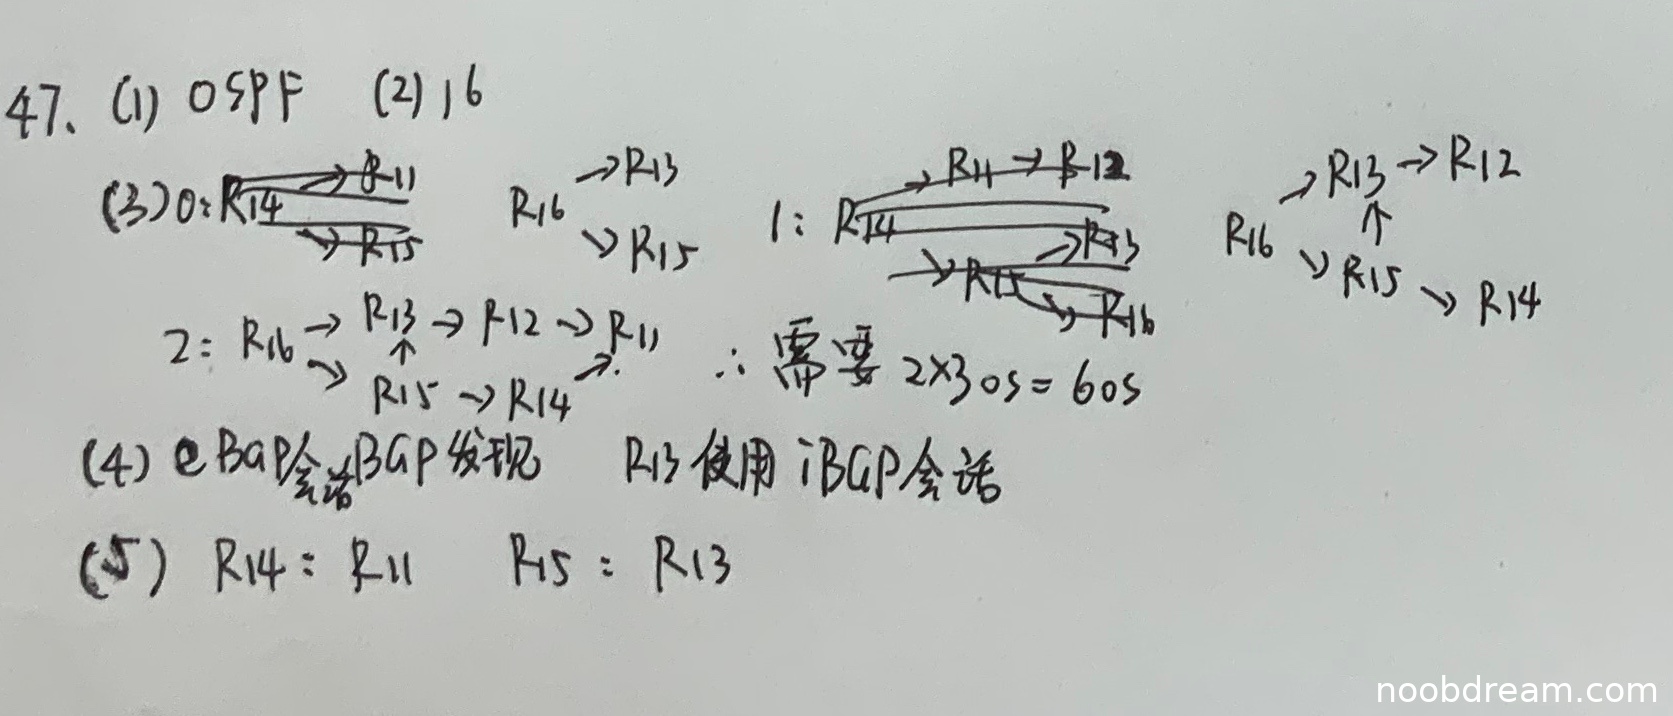 47. (1) OSPF (2) 16
(3) 0: R14 → R11 ↘ R15 R16 → R13 ↘ R15 1: R14 → R11 → R12 → R15 → R13 ↘ R16 R16 → R13 → R12 ↘ R15 ↑ ↘ R14
2: R16 → R13 → R12 → R11 ↘ R15 ↑ → R14 ↗ ∴ 需要 2×30s = 60s
(4) eBGP会话BGP发现 R13使用iBGP会话
(5) R14: R11 R15: R13
noobdream.com